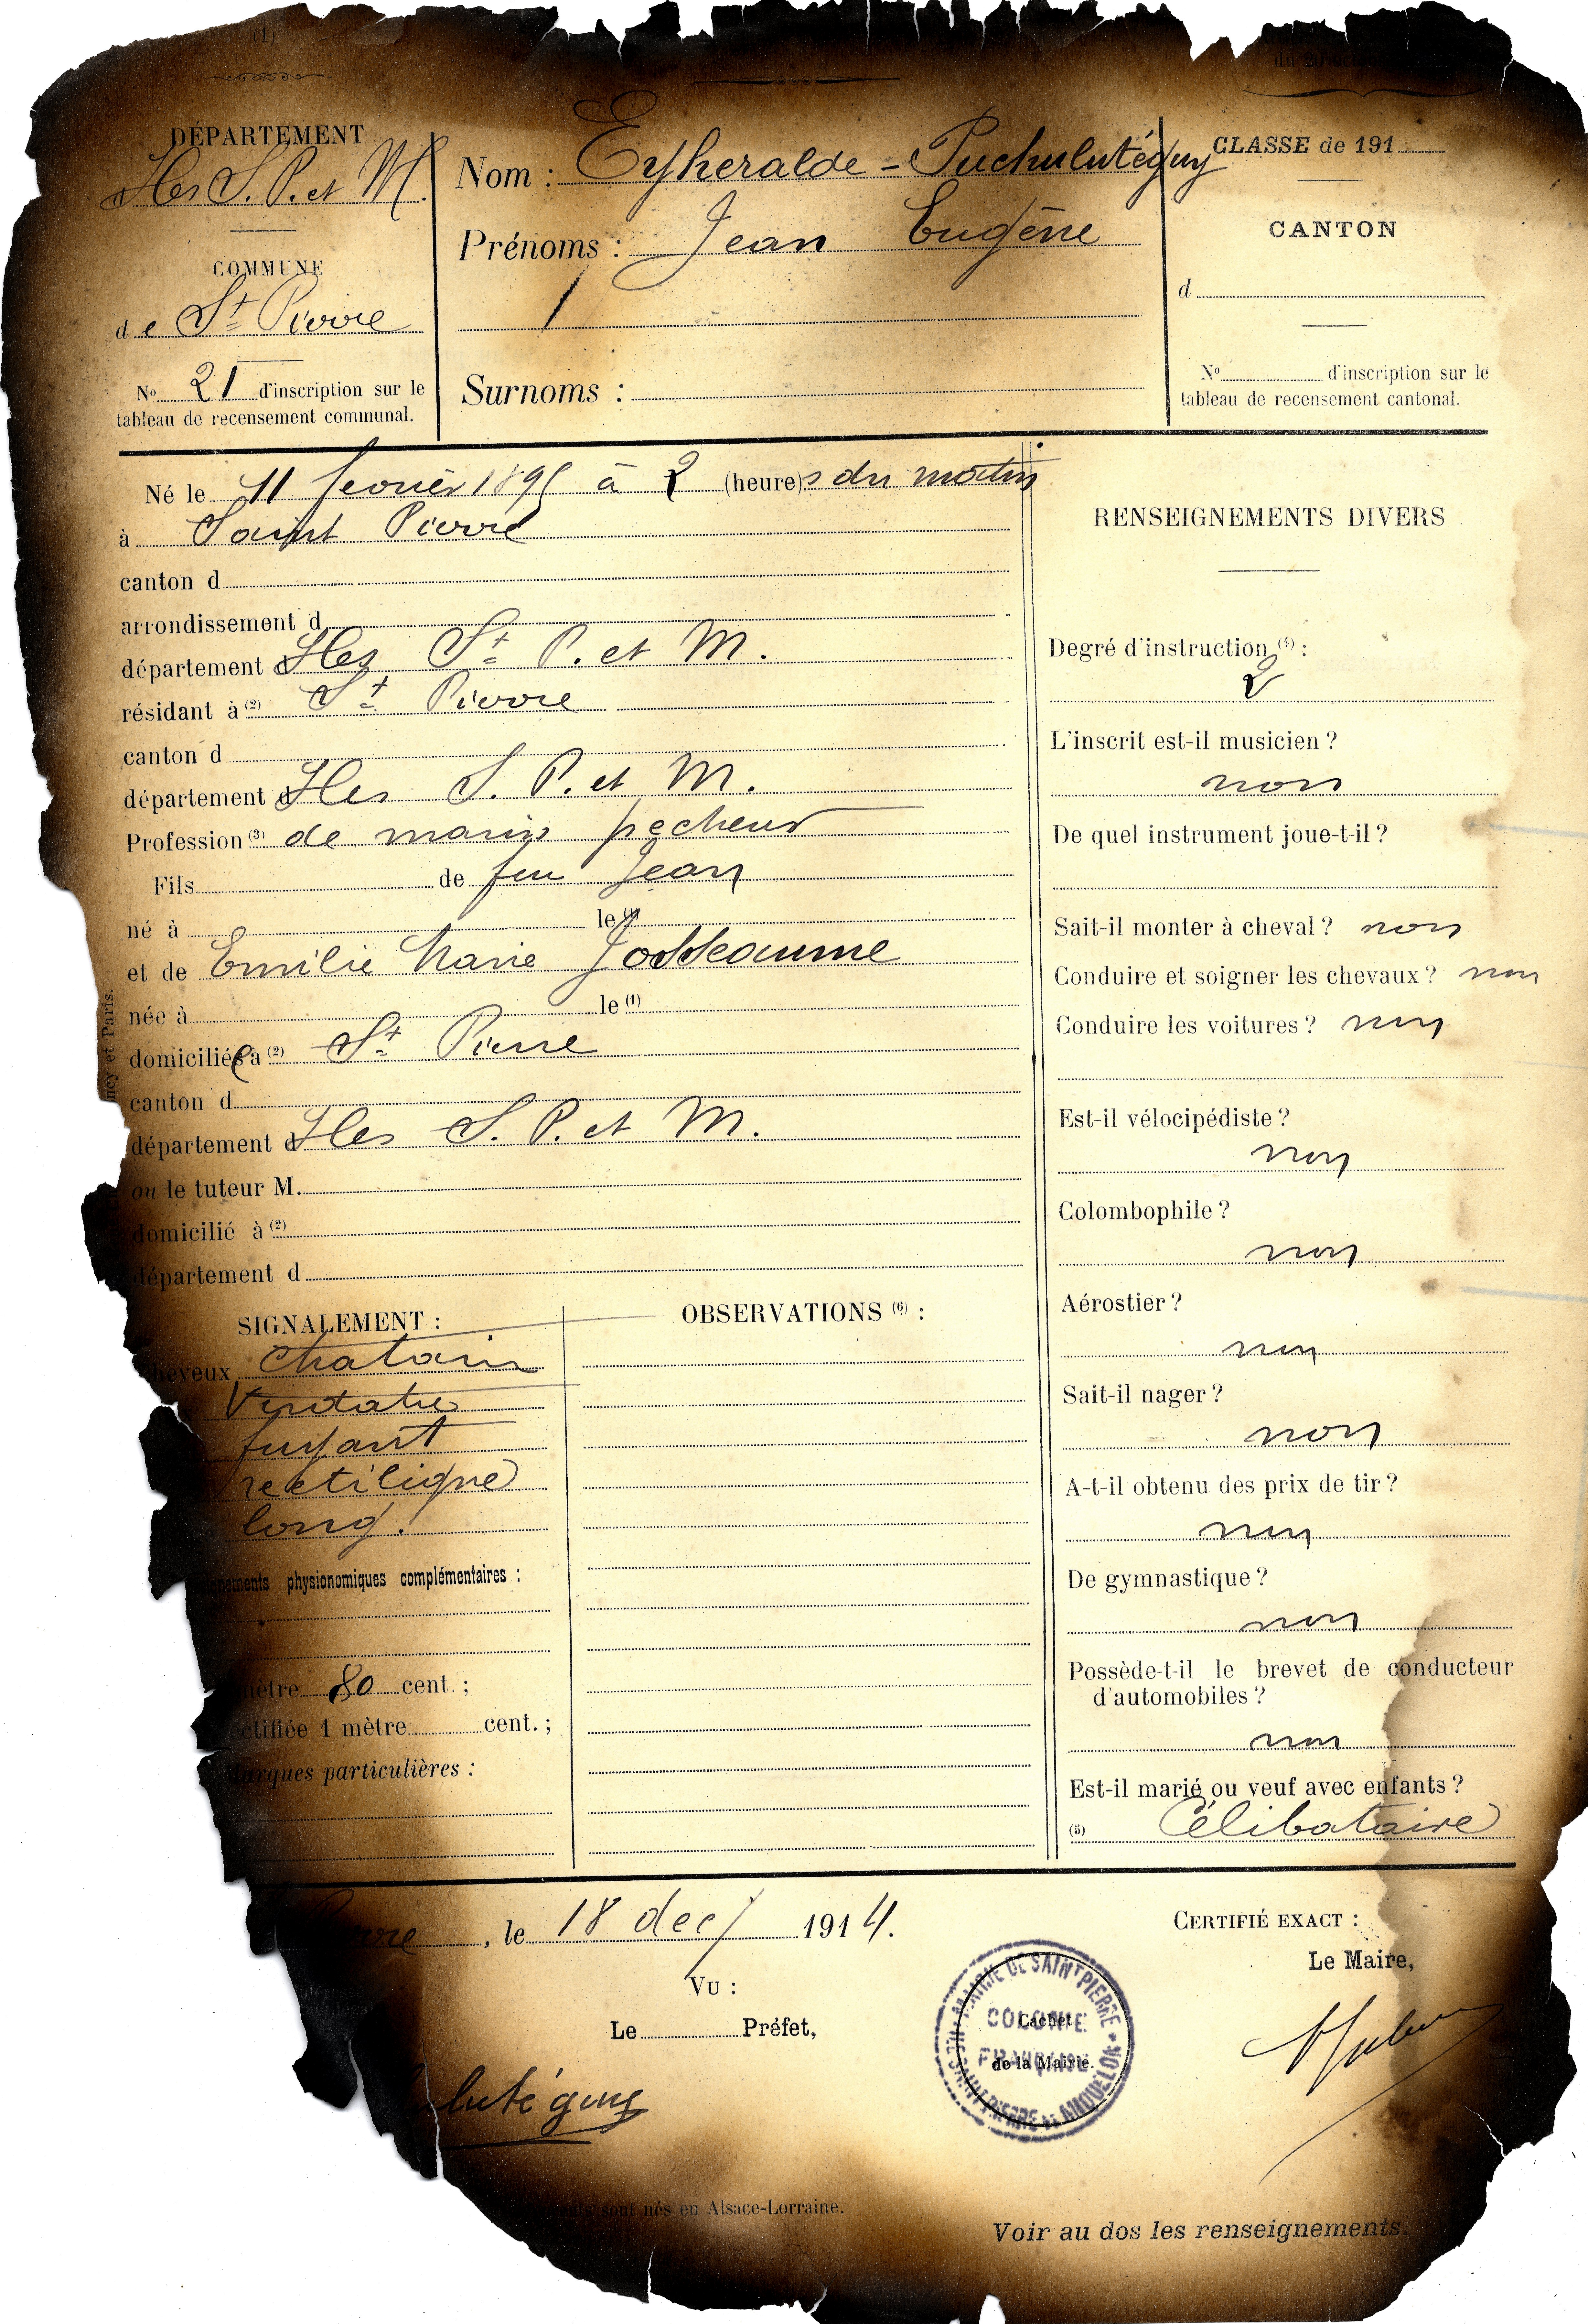 (1)
DÉPARTEMENT
Iles S. P. et M.
COMMUNE
de St Pierre
No 21 d'inscription sur le
tableau de recensement communal.
Nom : Eyheralde = Puchulutéguy
Prénoms : Jean Eugène
Surnoms :
CLASSE de 191
CANTON
d
No d'inscription sur le
tableau de recensement cantonal.
Né le 11 fevrier 189 à 2 (heure)s du matin
à Saint Pierre
canton d
arrondissement d
département d Iles St P. et M.
résidant à (2) St Pierre
canton d
département d Iles S. P. et M.
Profession (3) de marin pecheur
Fils de feu Jean
né à le (1)
et de Emilie Marie Josseaume
née à le (1)
domiciliée à (2) St Pierre
canton d
département d Iles S. P. et M.
ou le tuteur M.
domicilié à (2)
département d
SIGNALEMENT :
cheveux chatain
Verdatre
fuyant
rectiligne
long.
nements physionomiques complémentaires :
mètre 80 cent. ;
ectifiée 1 mètre cent. ;
Marques particulières :
OBSERVATIONS (6) :
RENSEIGNEMENTS DIVERS
Degré d'instruction (4) :
2
L'inscrit est-il musicien ?
non
De quel instrument joue-t-il ?
Sait-il monter à cheval ? non
Conduire et soigner les chevaux ? non
Conduire les voitures ? non
Est-il vélocipédiste ?
non
Colombophile ?
non
Aérostier ?
non
Sait-il nager ?
non
A-t-il obtenu des prix de tir ?
non
De gymnastique ?
non
Possède-t-il le brevet de conducteur
d'automobiles ?
non
Est-il marié ou veuf avec enfants ?
(5) Célibataire
rre, le 18 dec/ 1914.
VU :
Le Préfet,
CERTIFIÉ EXACT :
Le Maire,
MAIRIE DE SAINT PIERRE
COLONIE
FRANÇAISE
ILES SAINT PIERRE ET MIQUELON
Cachet
de la Mairie.
lutéguy
sont nés en Alsace-Lorraine.
Voir au dos les renseignements.
ncy et Paris.